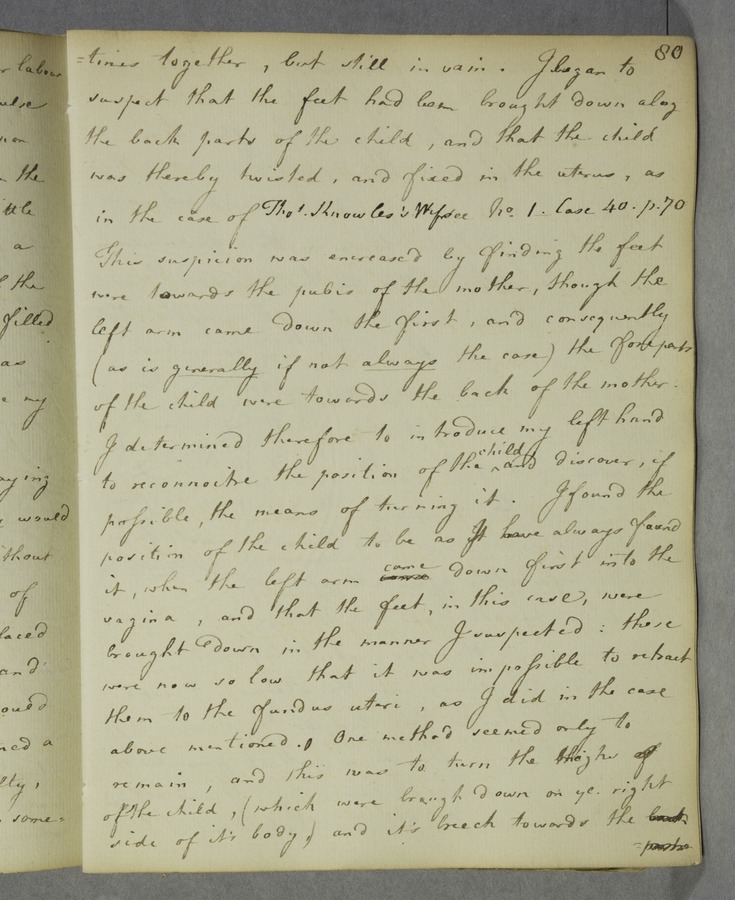 80
=times together, but still in vain. I began to
suspect that the feet had been brought down along
the back parts of the child, and that the child
was thereby twisted, and fixed in the uterus, as
in the case of Thos. Knowles's Wife see No. 1. Case 40. p. 70
This suspicion was encreased by finding the feet
were towards the pubis of the mother, though the
left arm came down the first, and consequently
(as is generally if not always the case) the foreparts
of the child were towards the back of the mother.
I determined therefore to introduce my left hand
to reconnoitre the position of the child and discover, if
possible, the means of turning it. I found the
position of the child to be as I have always found
it, when the left arm came down first into the
vagina, and that the feet, in this case, were
brought down in the manner I suspected: these
were now so low that it was impossible to retract
them to the fundus uteri, as I did in the case
above mentioned. One method seemed only to
remain, and this was to turn the thighs of
of the child, (which were brough down on ye. right
side of it's body,) and it's breech towards the back
=parts
r labour
ulse
the
ttle
a
f the
filled
as
e my
aying
would
thout
of
laced
and
ould
ned a
lty,
some=